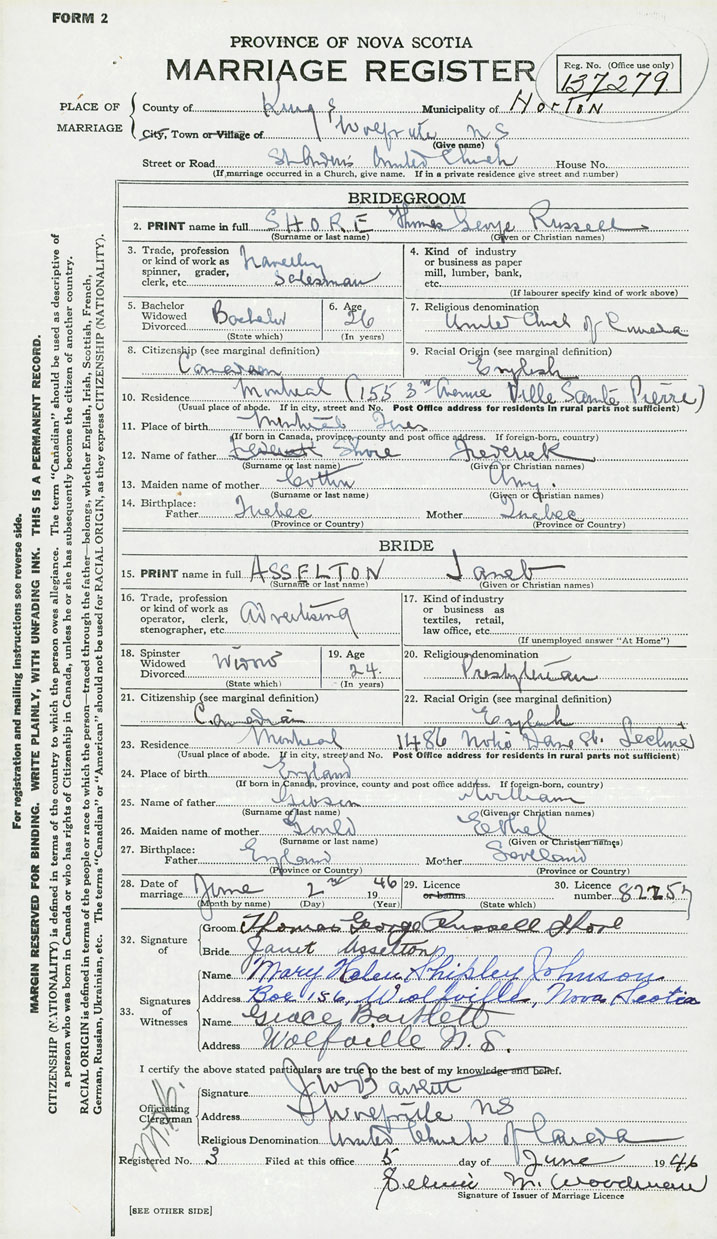 FORM 2
PROVINCE OF NOVA SCOTIA
MARRIAGE REGISTER
Reg. No. (Office use only)
137279
PLACE OF MARRIAGE
County of Kings Municipality of HORTON
City, Town or Village of Wolfville NS
(Give name)
Street or Road St Andrews United Church House No.
(If marriage occurred in a Church, give name. If in a private residence give street and number)
BRIDEGROOM
2. PRINT name in full SHORE Thomas George Russell
(Surname or last name) (Given or Christian names)
3. Trade, profession or kind of work as spinner, grader, clerk, etc. Travelling Salesman
4. Kind of industry or business as paper mill, lumber, bank, etc.
(If labourer specify kind of work above)
5. Bachelor Widowed Divorced Bachelor
(State which)
6. Age 26
(In years)
7. Religious denomination United Church of Canada
8. Citizenship (see marginal definition) Canadian
9. Racial Origin (see marginal definition) English
10. Residence Montreal (155 3rd Avenue Ville Sainte Pierre)
(Usual place of abode. If in city, street and No. Post Office address for residents in rural parts not sufficient)
11. Place of birth Montreal
(If born in Canada, province, county and post office address. If foreign-born, country)
12. Name of father Shore Frederick
(Surname or last name) (Given or Christian names)
13. Maiden name of mother Cotton Amy.
(Surname or last name) (Given or Christian names)
14. Birthplace: Father Quebec Mother Quebec
(Province or Country) (Province or Country)
BRIDE
15. PRINT name in full ASSELTON Janet
(Surname or last name) (Given or Christian names)
16. Trade, profession or kind of work as operator, clerk, stenographer, etc. Advertising
17. Kind of industry or business as textiles, retail, law office, etc.
(If unemployed answer "At Home")
18. Spinster Widowed Divorced Widow
(State which)
19. Age 24
(In years)
20. Religious denomination Presbyterian
21. Citizenship (see marginal definition) Canadian
22. Racial Origin (see marginal definition) English
23. Residence Montreal 1486 Notre Dame St. Lachine
(Usual place of abode. If in city, street and No. Post Office address for residents in rural parts not sufficient)
24. Place of birth England
(If born in Canada, province, county and post office address. If foreign-born, country)
25. Name of father Gibson William
(Surname or last name) (Given or Christian names)
26. Maiden name of mother Gould Ethel
(Surname or last name) (Given or Christian names)
27. Birthplace: Father England Mother Scotland
(Province or Country) (Province or Country)
28. Date of marriage June 2nd 1946
(Month by name) (Day) (Year)
29. Licence or banns
(State which)
30. Licence number 82257
32. Signature of
Groom Thomas George Russell Shore
Bride Janet Asselton
33. Signatures of Witnesses
Name Mary Helen Shipley Johnson
Address Box 156, Wolfville, Nova Scotia
Name Grace Bartlett
Address Wolfville N.S.
I certify the above stated particulars are true to the best of my knowledge and belief.
Officiating Clergyman
Signature J W Bartlett
Address Wolfville NS
Religious Denomination United Church of Canada
Registered No. 3 Filed at this office 5 day of June 1946
Selina M. Woodman
Signature of Issuer of Marriage Licence
[SEE OTHER SIDE]
For registration and mailing instructions see reverse side.
MARGIN RESERVED FOR BINDING. WRITE PLAINLY, WITH UNFADING INK. THIS IS A PERMANENT RECORD.
CITIZENSHIP (NATIONALITY) is defined in terms of the country to which the person owes allegiance. The term "Canadian" should be used as descriptive of
a person who was born in Canada or who has rights of Citizenship in Canada, unless he or she has subsequently become the citizen of another country.
RACIAL ORIGIN is defined in terms of the people or race to which the person—traced through the father—belongs, whether English, Irish, Scottish, French,
German, Russian, Ukrainian, etc. The terms "Canadian" or "American" should not be used for RACIAL ORIGIN, as they express CITIZENSHIP (NATIONALITY).